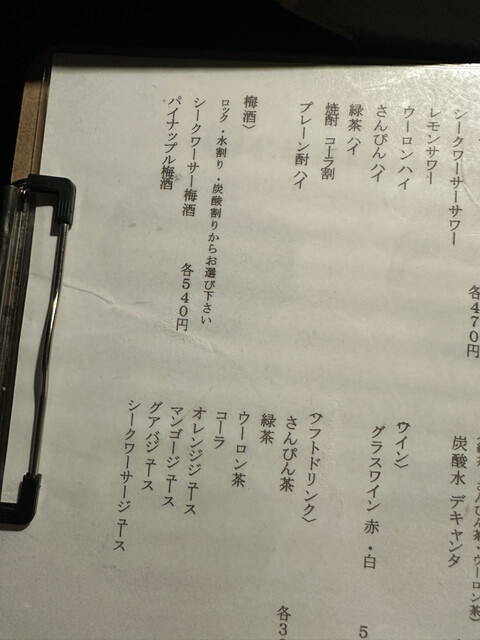 シークワーサーサワー
レモンサワー
ウーロンハイ
さんぴんハイ
緑茶ハイ
焼酎 コーラ割
プレーン酎ハイ
各470円
梅酒〉
ロック・水割り・炭酸割りからお選び下さい
シークワーサー梅酒
パイナップル梅酒
各540円
さんぴん茶・ウーロン茶)
炭酸水 デキャンタ
〈ワイン〉
グラスワイン 赤・白
5
〈ソフトドリンク〉
さんぴん茶
緑茶
ウーロン茶
コーラ
オレンジジュース
マンゴージュース
グアバジュース
シークワーサージュース
各3